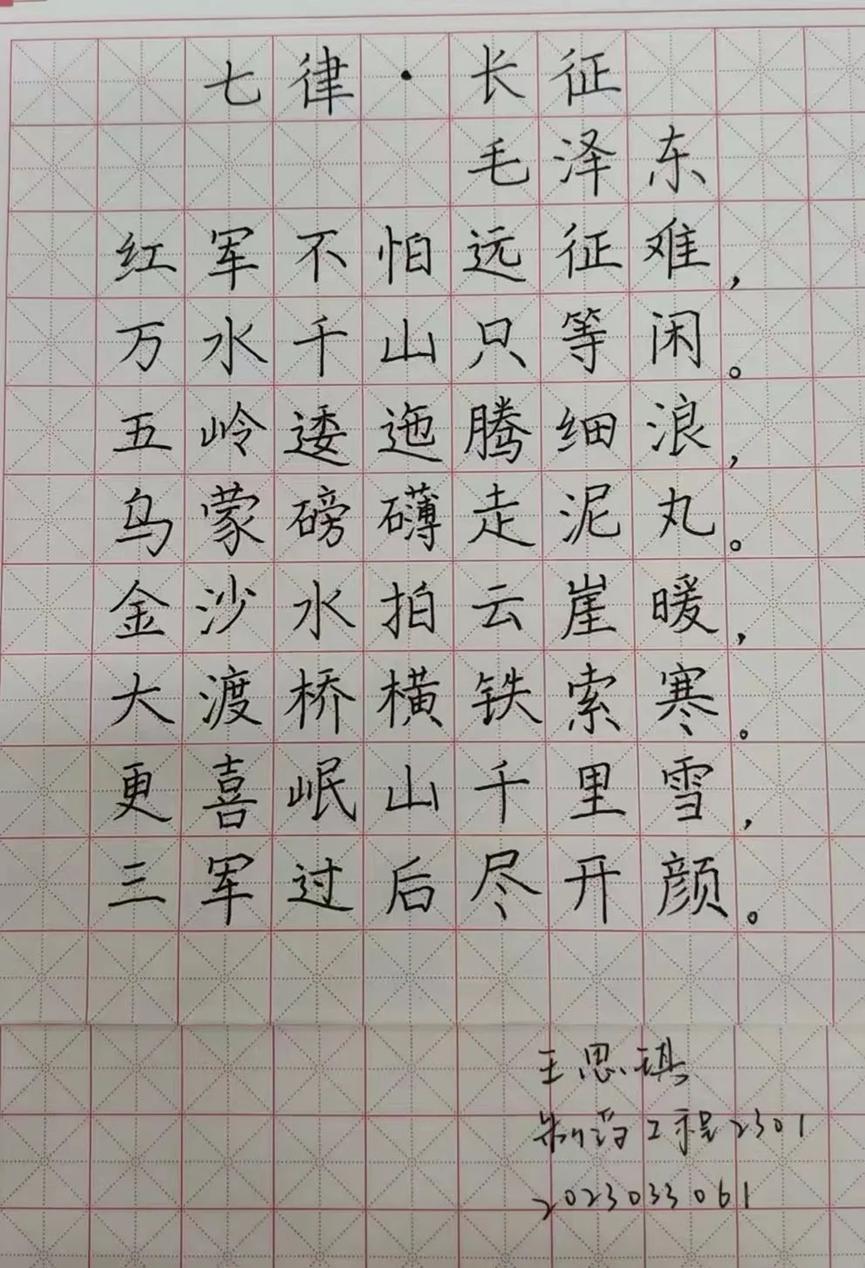 七律·长征
毛泽东
红军不怕远征难，
万水千山只等闲。
五岭逶迤腾细浪，
乌蒙磅礴走泥丸。
金沙水拍云崖暖，
大渡桥横铁索寒。
更喜岷山千里雪，
三军过后尽开颜。
王思琪
制药工程2301
2023033061